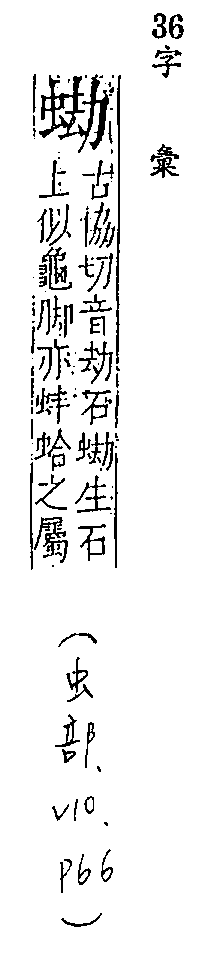 36字彙
蜐
古協切音劫石蜐生石
上似龜脚亦蚌蛤之屬
(虫部、V10、P66)